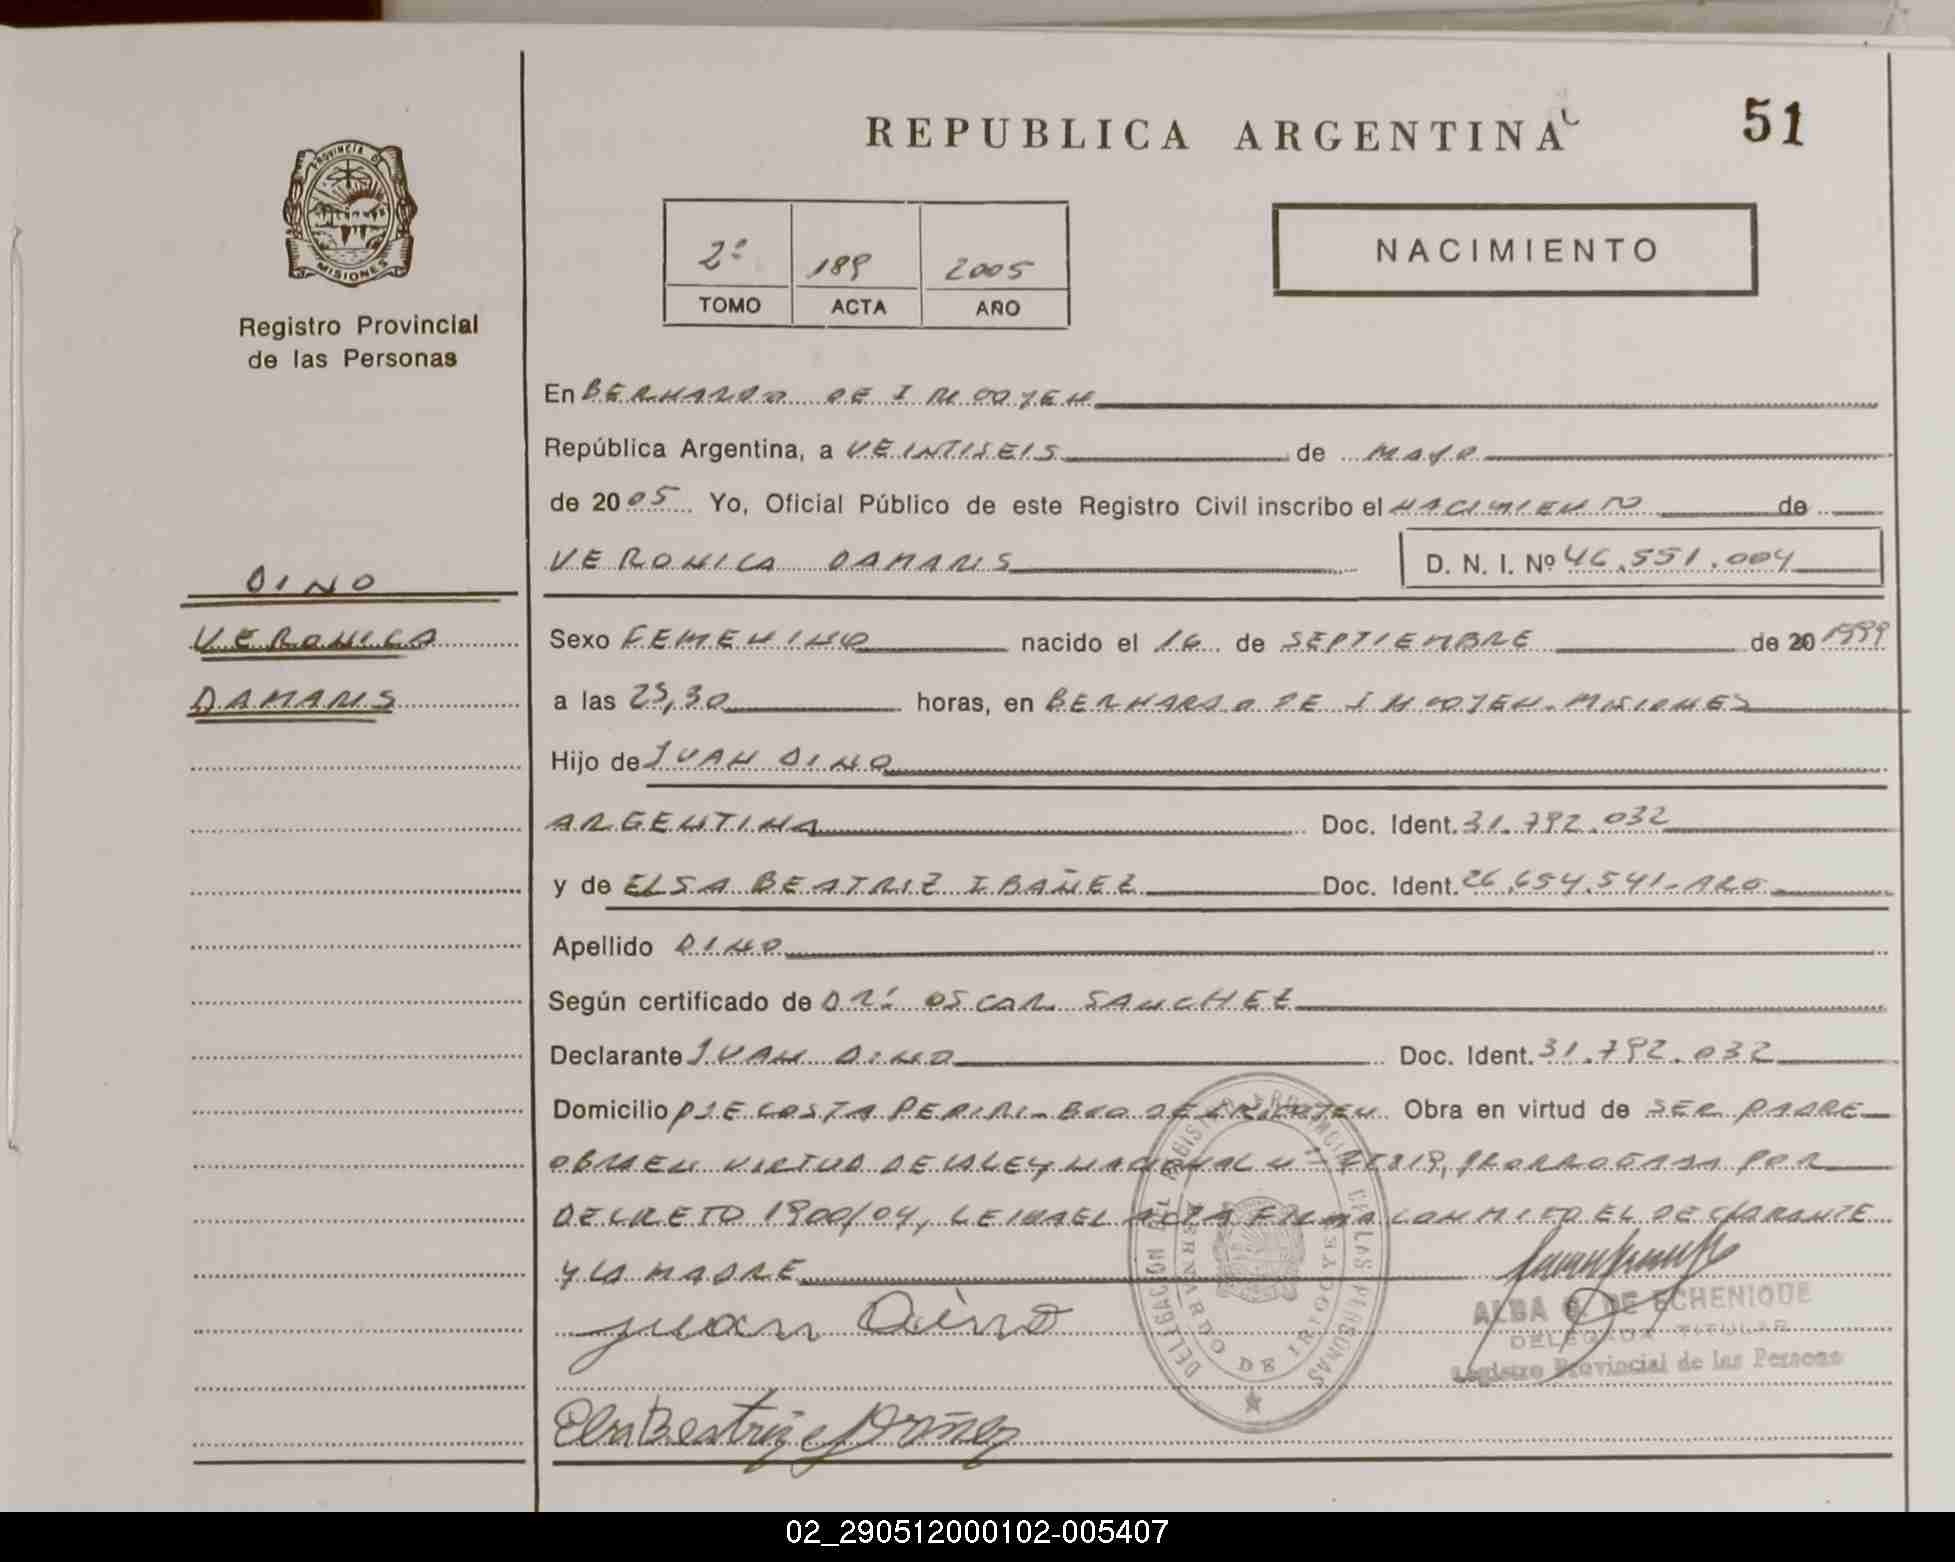 REPUBLICA ARGENTINA
51
PROVINCIA DE
MISIONES
Registro Provincial
de las Personas
2º 189 2005
TOMO ACTA AÑO
NACIMIENTO
En BERNARDO DE IRIGOYEN
República Argentina, a VEINTISEIS de MAYO
de 2005 Yo, Oficial Público de este Registro Civil inscribo el NACIMIENTO de
VERONICA DAMARIS D. N. I. Nº 46.551.004
DINO
VERONICA
DAMARIS
Sexo FEMENINO nacido el 16 de SEPTIEMBRE de 20 1999
a las 23,30 horas, en BERNARDO DE IRIGOYEN-MISIONES
Hijo de JUAN DINO
ARGENTINA Doc. Ident. 31.792.032
y de ELSA BEATRIZ IBAÑEZ Doc. Ident. 26.654.541-ARG
Apellido DINO
Según certificado de DR. OSCAR SANCHEZ
Declarante JUAN DINO Doc. Ident. 31.792.032
Domicilio PJE COSTA PERIRI-BDO DE IRIGOYEN Obra en virtud de SER PADRE
OBRA EN VIRTUD DE LA LEY NACIONAL Nº 25819, PRORROGADA POR
DECRETO 1900/04, LEIDA EL ACTA FIRMA CONMIGO EL DECLARANTE
Y LA MADRE
Juan Dino
Elsa Beatriz Ibañez
DELEGACION DEL REGISTRO PROVINCIAL DE LAS PERSONAS
BERNARDO DE IRIGOYEN
ALBA G. DE ECHENIQUE
DELEGADA TITULAR
Registro Provincial de las Personas
02_290512000102-005407